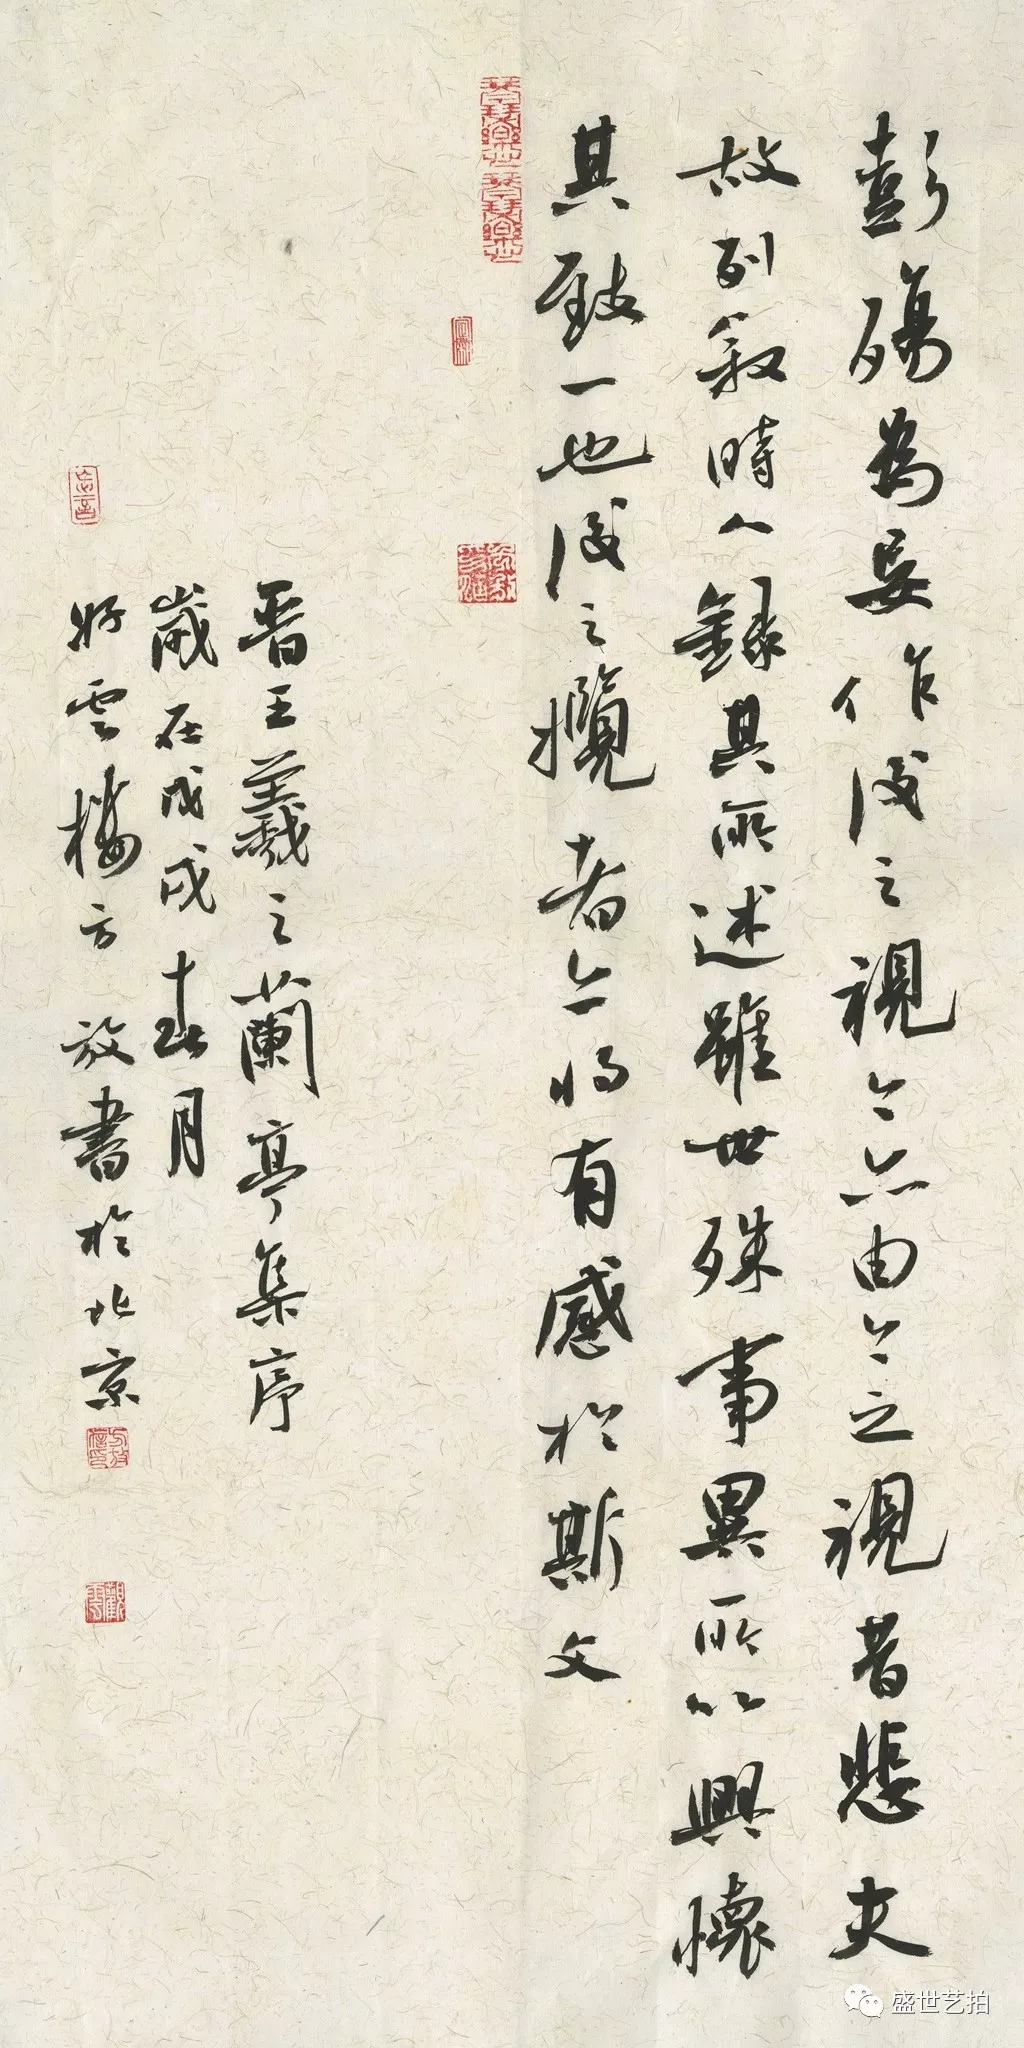 彭殤為妄作後之視今亦由今之視昔悲夫
故列敘時人錄其所述雖世殊事異所以興懷
其致一也後之攬者亦將有感於斯文
晉王羲之蘭亭集序
歲在戊戌春月
好雲樓方放書於北京
盛世艺拍